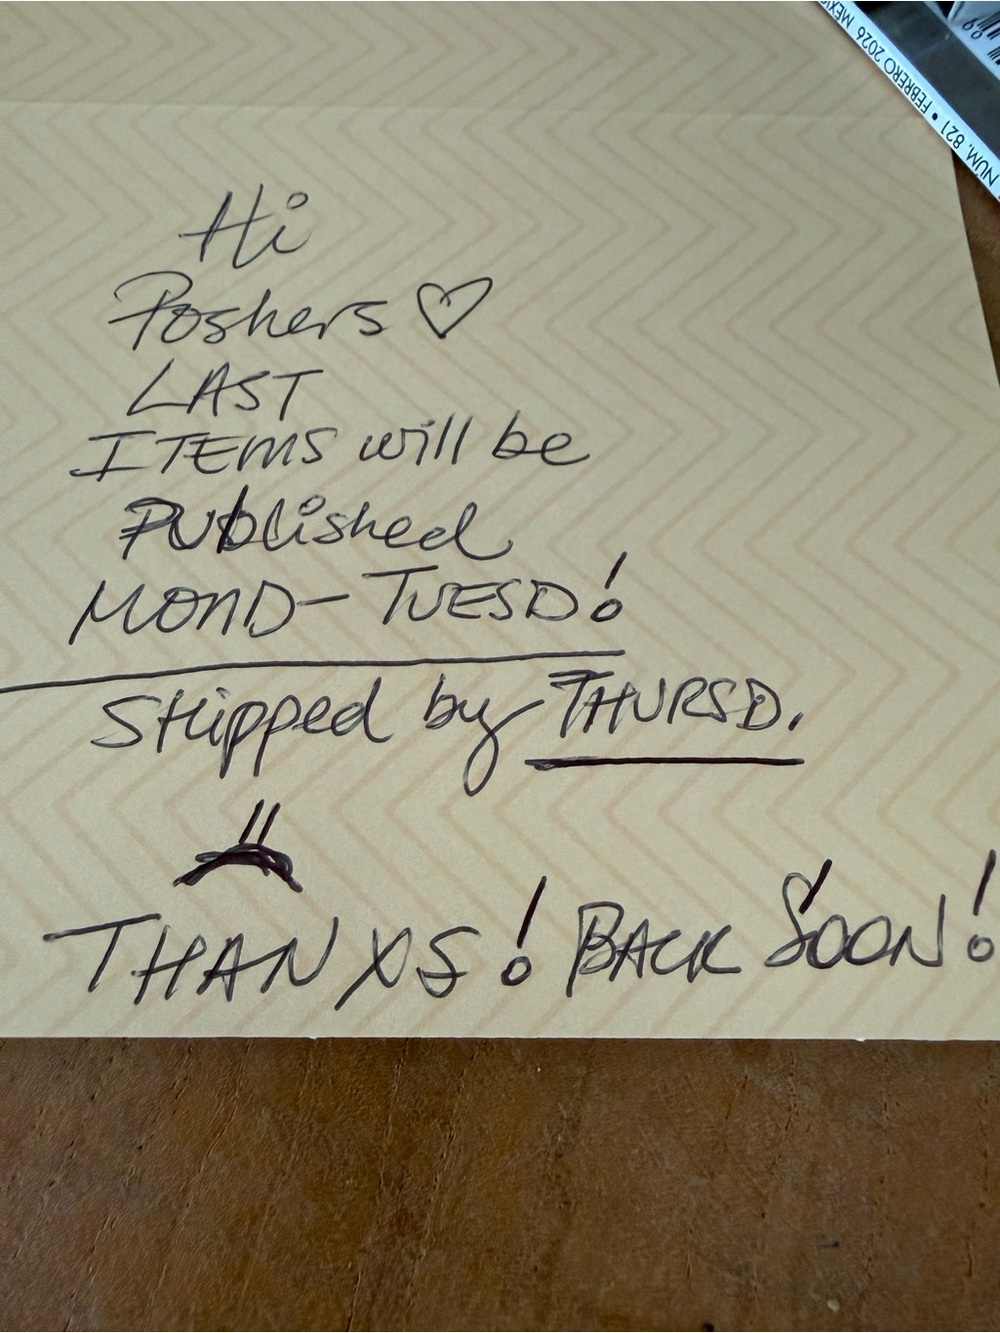 Hi
Poshers ♡
LAST
ITEMS will be
Published
MOND- TUESD!
Shipped by THURSD.
THANXS! BACK SOON!
NÚM. 821 • FEBRERO 2026 MÉXIC